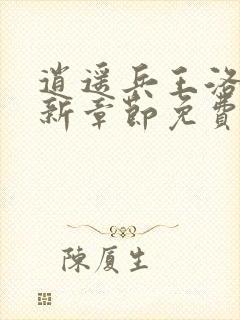 逍遥兵王洛
新章節免費
陳厦生